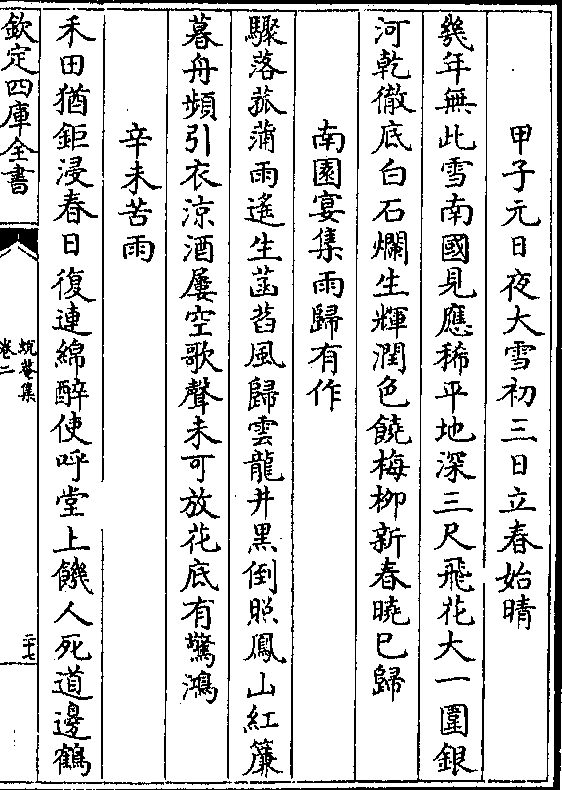 甲子元日夜大雪初三日立春始晴
幾年無此雪南國見應稀平地深三尺飛花大一圍銀
河乾徹底白石爛生輝潤色饒梅柳新春曉已歸
南園宴集雨歸有作
驟落菰蒲雨遙生菡萏風歸雲龍井黒倒照鳳山紅簾
暮舟頻引衣涼酒屢空歌聲未可放花底有驚鴻
辛未苦雨
禾田猶鉅浸春日復連綿醉使呼堂上饑人死道邊鶴
欽定四庫全書
蛻菴集
卷二
二十七